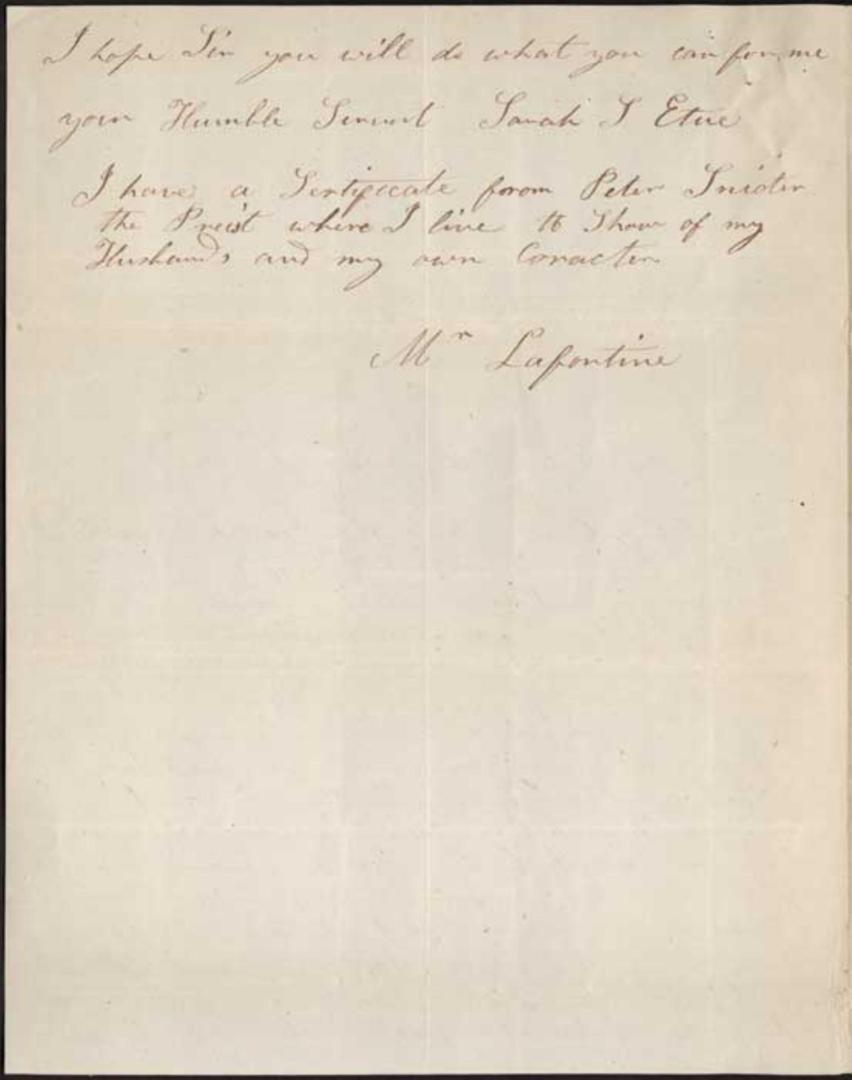 I hope Sir you will do what you can for me
your Humble Servent Sarah S Etue
I have a Sertificate forom Peter Snider
the Preist where I live to Show of my
Husbands and my own Coracter
Mr Lafontine